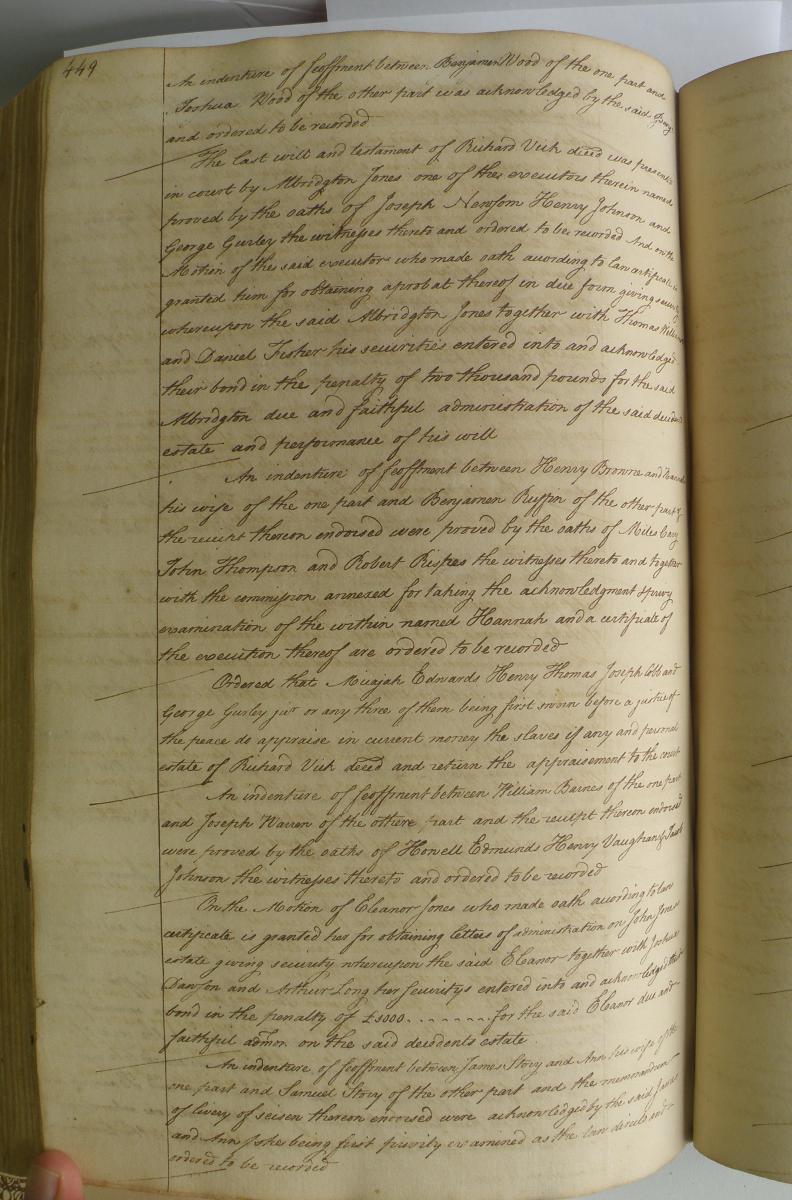 449
An indenture of feoffment between Benjamin Wood of the one part and
Joshua Wood of the other part was acknowledged by the said Benj
and ordered to be recorded
The last will and testament of Richard Vick decd was presented
in court by Albridgton Jones one of the executors therein named
proved by the oaths of Joseph Newsom Henry Johnson and
George Gurley the witnesses thereto and ordered to be recorded And on the
Motion of the said executor who made oath according to law certificate is
granted him for obtaining a probat thereof in due form giving security
whereupon the said Albridgton Jones together with Thomas Williams
and Daniel Fisher his securities entered into and acknowledged
their bond in the penalty of two thousand pounds for the said
Albridgton due and faithful administration of the said decedents
estate and performance of his will
An indenture of feoffment between Henry Browne and Hannah
his wife of the one part and Benjamen Ruffin of the other part &
the receipt thereon endorsed were proved by the oaths of Miles Cary
John Thompson and Robert the witnesses thereto and together
with the commission annexed for taking the acknowledgment & privy
examination of the within named Hannah and a certificate of
the execution thereof are ordered to be recorded
Ordered that Micajah Edwards Henry Thomas Joseph Cobb and
George Gurley junr or any three of them being first sworn before a justice of
the peace do appraise in current money the slaves if any and personal
estate of Richard Vick decd and return the appraisement to the court
An indenture of feoffment between William Barnes of the one part
and Joseph Warren of the othere part and the receipt thereon endorsed
were proved by the oaths of Howell Edmunds Henry Vaughan &
Johnson the witnesses thereto and ordered to be recorded
On the Motion of Eleanor Jones who made oath according to law
certificate is granted her for obtaining letters of administration on John Jones
estate giving security whereupon the said Eleanor together with Joshua
Dawson and Arthur Long her securitys entered into and acknowledged their
bond in the penalty of £1000 . . . . . . . . for the said Eleanor due and
faithful admon on the said decedents estate
An indenture of feoffment between James Story and Ann his wife of the
one part and Samuel Story of the other part and the memorandum
of livery of seisen thereon endorsed were acknowledged by the said James
and Ann (she being first privily examined as the law directs and
ordered to be recorded